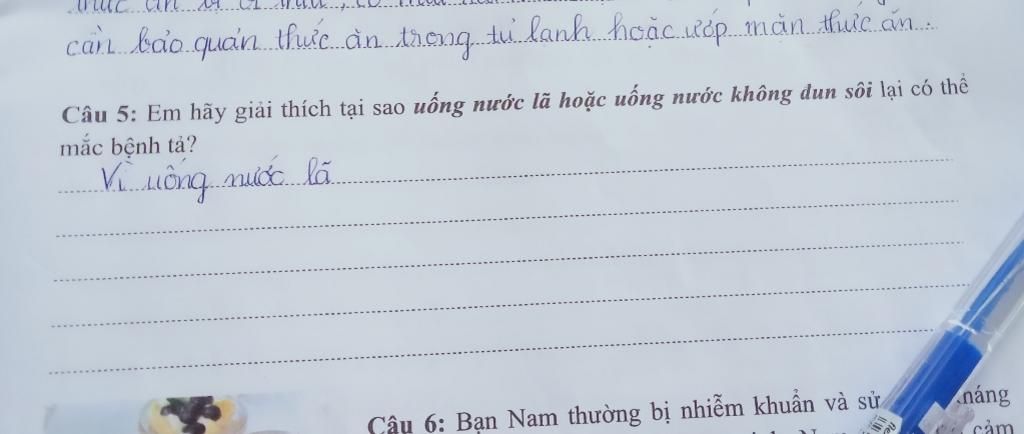 thức ăn
cần bảo quản thức ăn trong tủ lạnh hoặc ướp mặn thức ăn.
Câu 5: Em hãy giải thích tại sao uống nước lã hoặc uống nước không đun sôi lại có thể
mắc bệnh tả?
Vì uống nước lã
Câu 6: Bạn Nam thường bị nhiễm khuẩn và sử
cảm